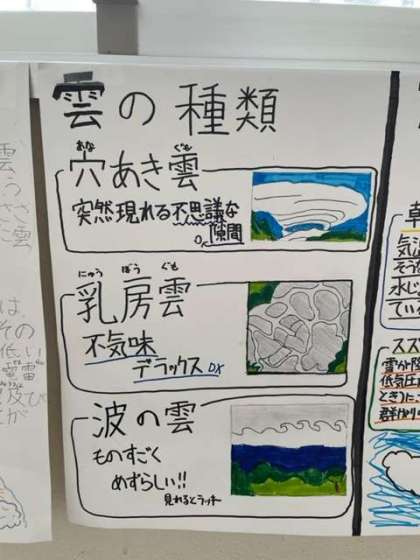 雲の種類
あな
ぐも
穴あき雲
突然現れる不思議な
隙間
にゅう ぼう ぐも
乳房雲
不気味
デラックス DX
波の雲
ものすごく
めずらしい!!
見れるとラッキー
雲
は
その
低い
及び
が
スズ
低気圧